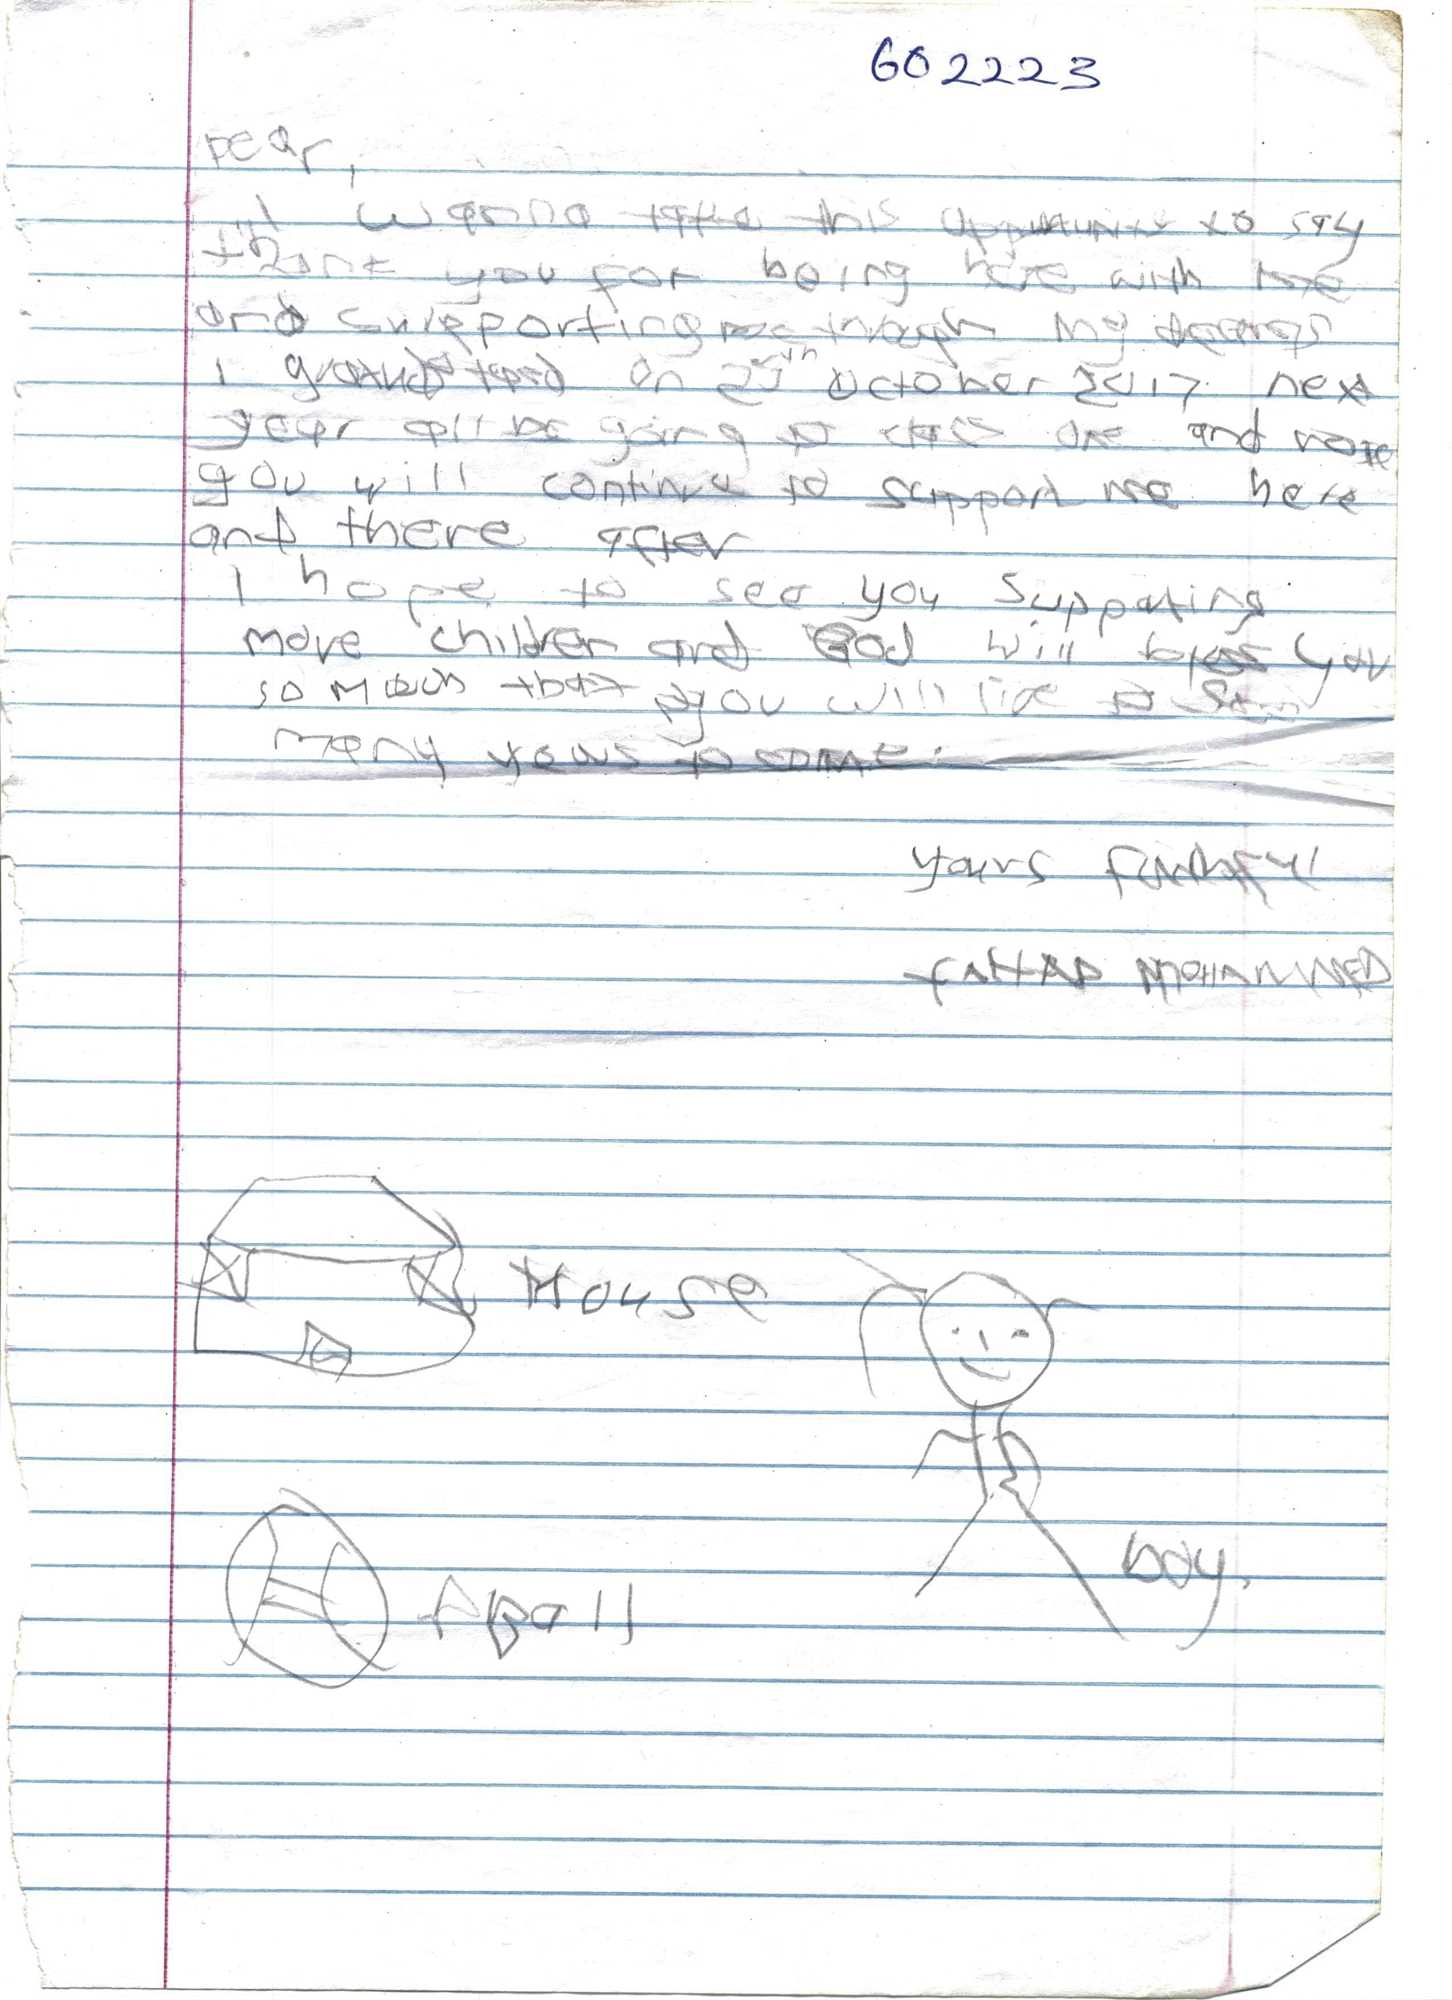 602223
Dear,
I wanna take this oppurtunity to say
thank you for being here with me
and suspporting me through my
I on 25th October 2017. next
year all be going to class one and
you will continue to support me here
and there after
I hope to see you Suppoting
more children and God will bless you
so much that you will live to
many years to come.
yours faithful
FAHAD MOHAMMED
House
boy.
Ball